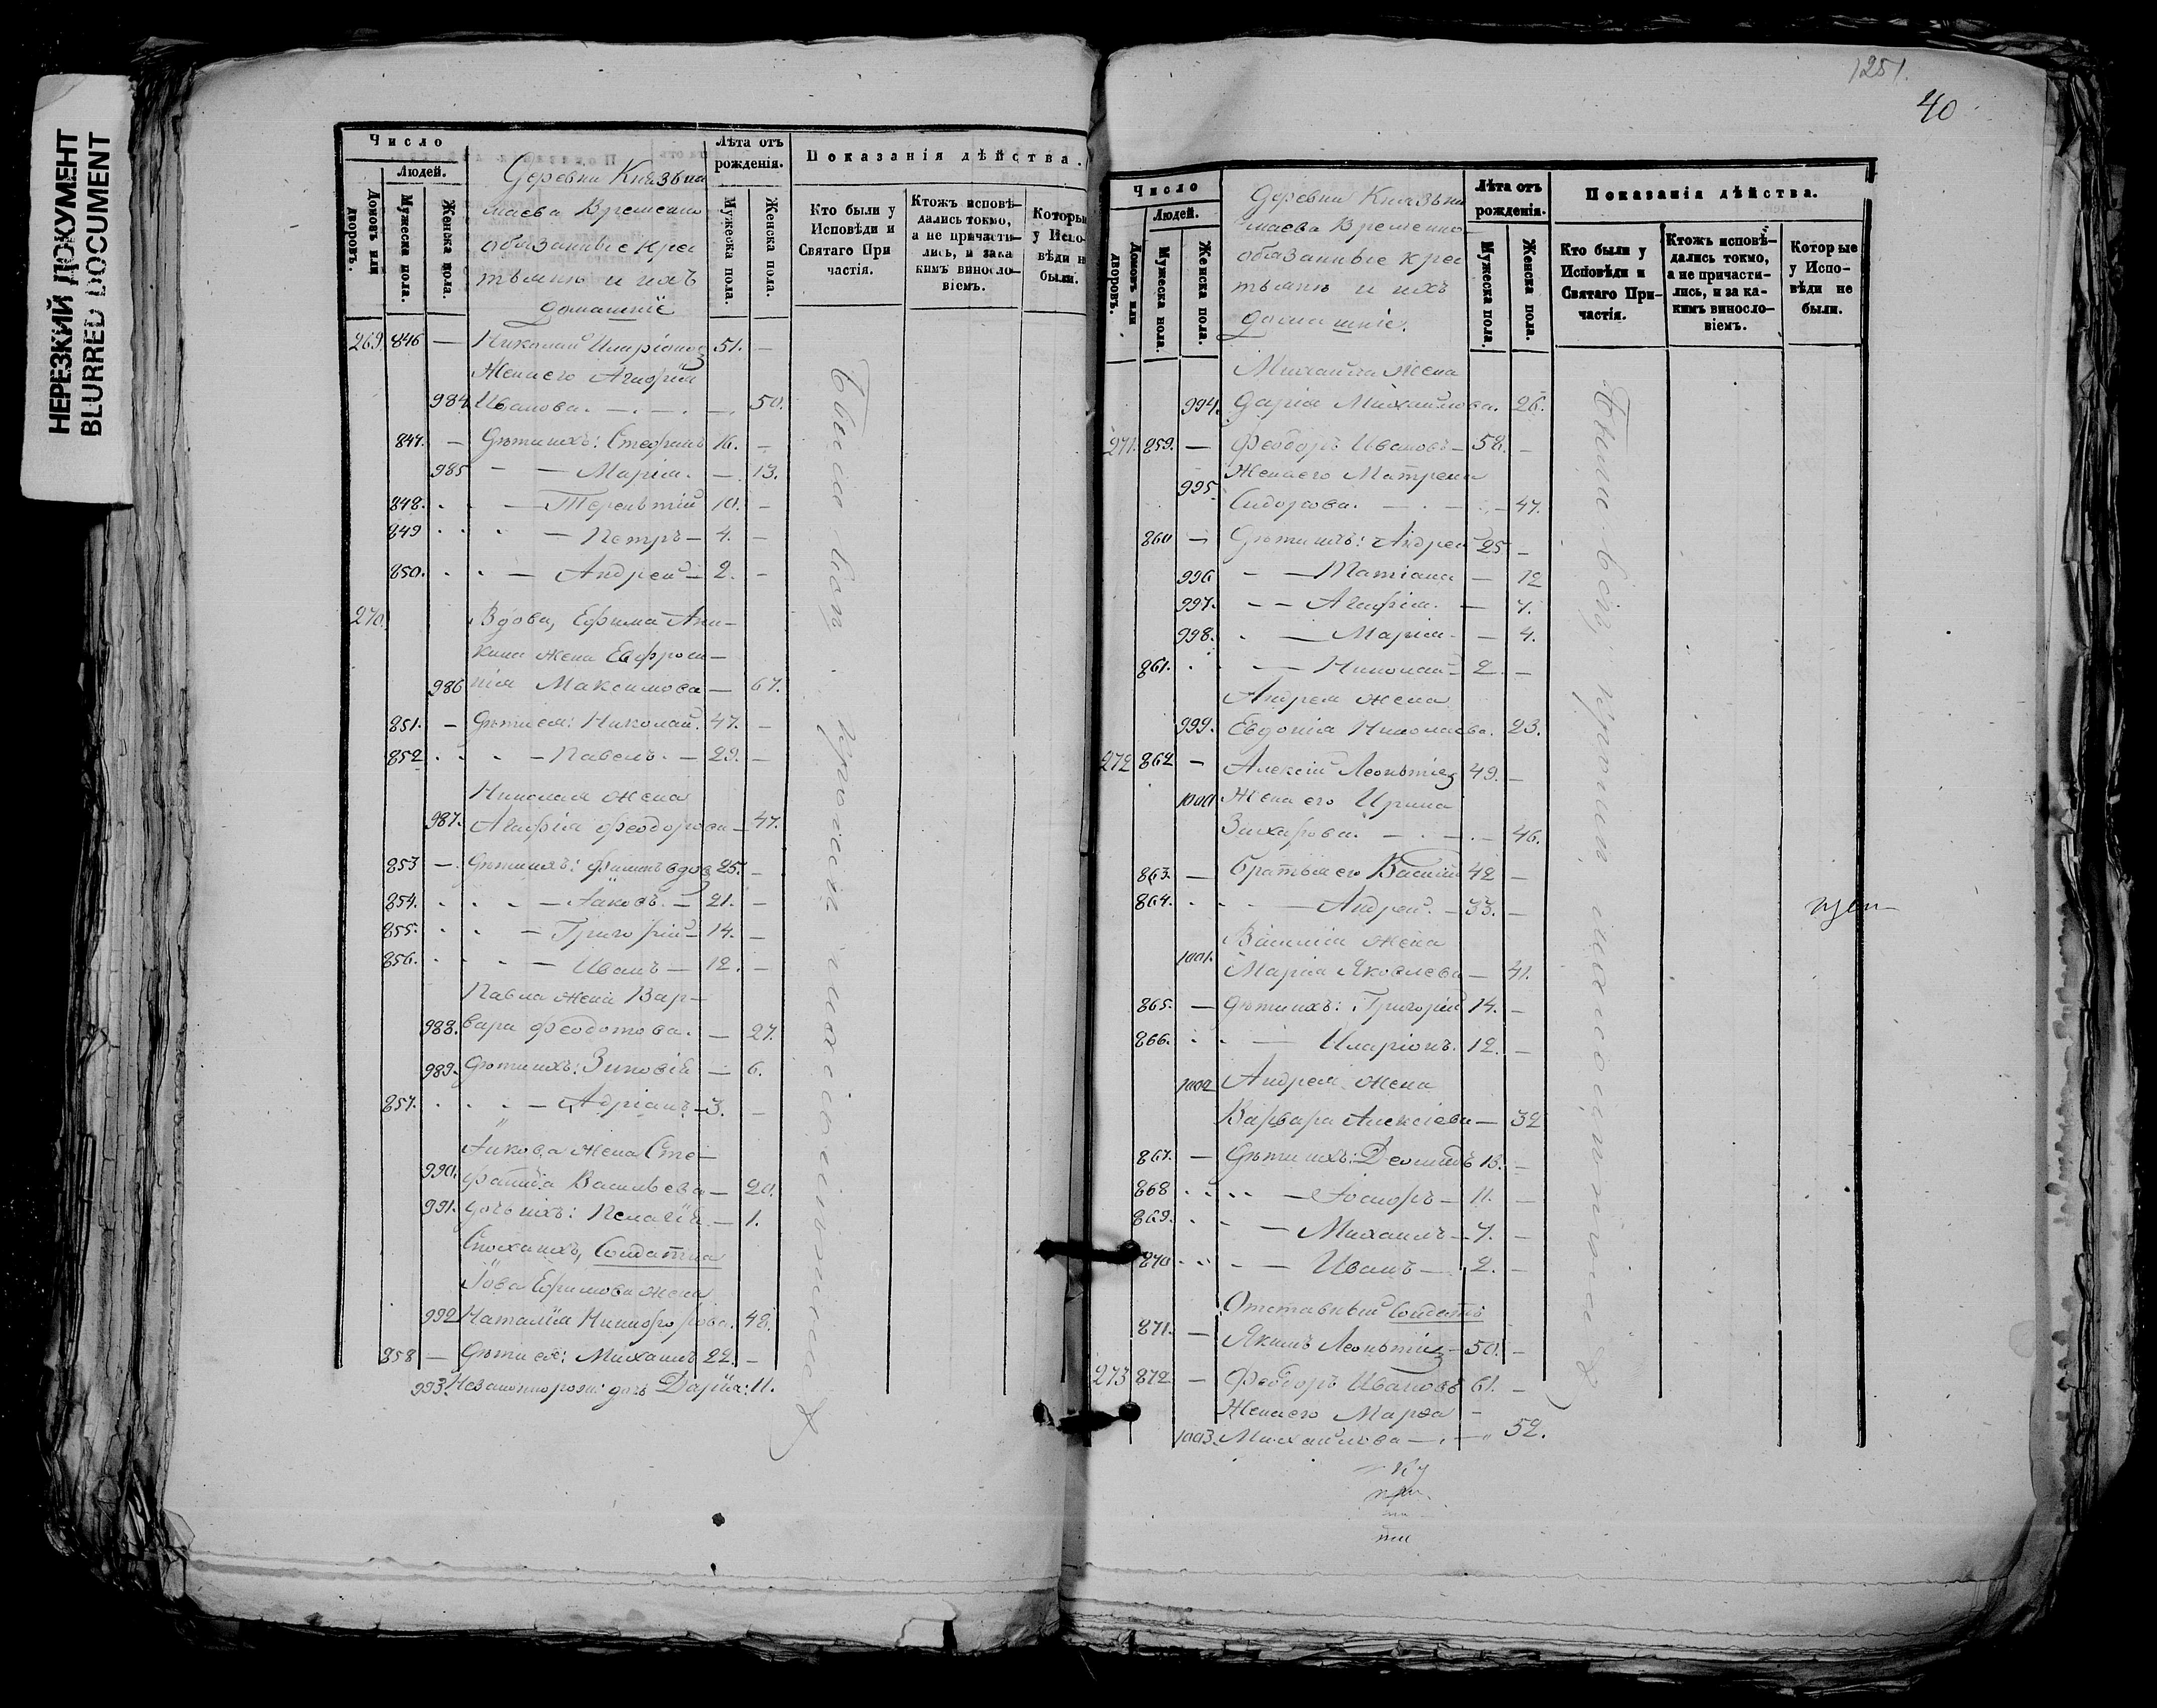 НЕРЕЗКИЙ ДОКУМЕНТ
BLURRED DOCUMENT
Число
Людей.
Домовъ или дворовъ.
Мужеска пола.
Женска пола.
Деревни Князьи-
маева Временно
обязанные крес
тьяне и ихъ
домашніе
Лѣта отъ рожденія.
Мужеска пола.
Женска пола.
Показанія дѣйства.
Кто были у Исповѣди и Святаго При частія.
Ктожъ исповѣ- дались токмо, а не причасти- лись, и за ка кимъ виносло- віемъ.
Которы у Испо- вѣди н были.
269. 846 — Николай Иларіоновъ 51. —
Жена его Агафія
984 Иванова. — 50.
847. — Дѣти ихъ: Стефанъ 16. —
985 — Марія. — 13.
848. — Терентій 10. —
849 — Петръ — 4. —
850. — Андрей — 2. —
270. Вдова, Ефима Ани-
кина жена Евфроси-
986 нія Максимова — 67.
851. — Дѣти ея: Николай. 47. —
852 — Павелъ. — 29. —
Николая жена
987. Агафія Феодорова — 47.
853 — Дѣти ихъ: вдов 25. —
854. — Іаковъ. — 21. —
855. — Григорій — 14. —
856. — Иванъ — 12. —
Павла жена Вар-
988. вара Феодотова. — 27.
989. Дѣти ихъ: Зиновія — 6.
857. — Адріанъ — 3. —
Іакова жена Сте-
990. фанида Васильева — 20.
991. дочь ихъ: Пелагія — 1.
Сноха ихъ, Солдатка
Іова Ефимова жена
992 Наталія Никифорова. 48.
858 — Дѣти ея: Михаилъ 22. —
993. Незаконнорож: дочь Дарія: 11.
Были вси, прочіи
1251.
40
Число
Людей.
Домовъ или дворовъ.
Мужеска пола.
Женска пола.
Деревни Князьи
маева Временно-
обязанные крес
тьяне и ихъ
домашніе.
Лѣта отъ рожденія.
Мужеска пола.
Женска пола.
Показанія дѣйства.
Кто были у Исповѣди и Святаго При- частія.
Ктожъ исповѣ- дались токмо, а не причасти- лись, и за ка- кимъ виносло- віемъ.
Которые у Испо- вѣди не были.
Михаила жена
994. Дарія Михайлова. 26.
271. 859. — Феодоръ Ивановъ — 58. —
Жена его Матрена
995. Сидорова. — 47.
860 — Дѣти ихъ: Андрей 25 —
996 — Татіана — 12
997. — Агафія. — 7.
998. — Марія — 4.
861. — Николай — 2 —
Андрея жена
999. Евдокія Николаева. 23.
272 862 — Алексій Леонтіев 49. —
1000 Жена его Ирина
Захарова. — 46.
863. — Братья его Василій 42 —
864. — Андрей. — 33. —
Василія жена
1001. Марія Яковлева — 41.
865. — Дѣти ихъ: Григорій 14. —
866. — Иларіонъ. 12. —
1002 Андрея жена
Варвара Алексіева — 32
867. — Дѣти ихъ: Деомидъ 13. —
868 — 11. —
869. — Михаилъ — 7. —
870 — Иванъ — 2. —
Отставный Солдатъ
871. — Якимъ Леонтіев — 50. —
273 872. — Феодоръ Ивановъ 61. —
Жена его Марѳа —
1003. Михайлова — 52.
Были вси, прочіи